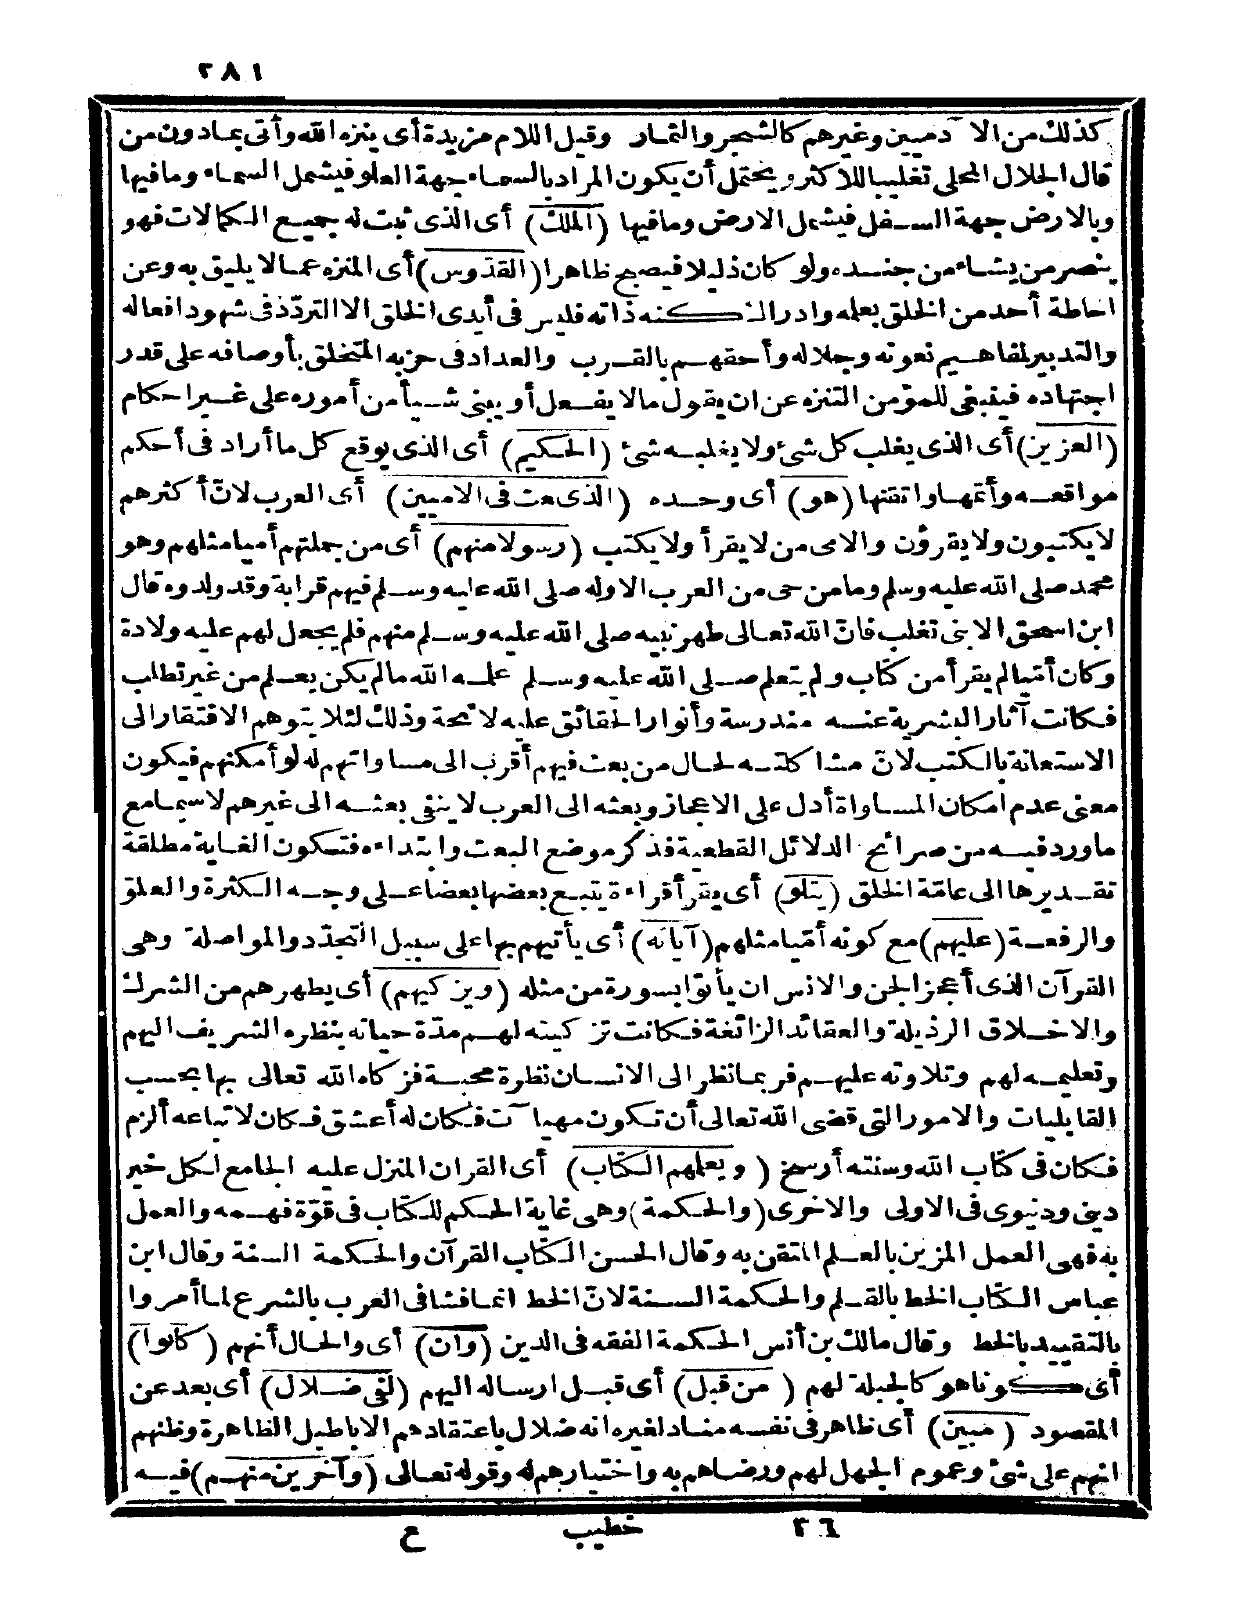 ٢٨١
كذلك من الآدميين وغيرهم كالشجر والثمار وقيل اللام مزيدة أى ينزه الله وأتى بما دون من
قال الجلال المحلى تغليبا للاكثر ويحتمل أن يكون المراد بالسماء جهة العلو فيشمل السماء ومافيها
وبالارض جهة السفل فيشمل الارض ومافيها (الملك) أى الذى ثبت له جميع الكمالات فهو
ينصر من يشاء من جنده ولو كان ذليلا فيصبح ظاهرا (القدّوس) أى المنزه عما لا يليق به وعن
احاطة أحد من الخلق بعلمه وادراك كنه ذاته فليس فى أيدى الخلق الا التردّد فى شهود افعاله
والتدبير لمفاهيم نعوته وجلاله وأحقهم بالقرب والعداد فى حزبه المتخلق بأوصافه على قدر
اجتهاده فينبغى للمؤمن التنزه عن ان يقول مالا يفعل أو يبنى شيأ من أموره على غير احكام
(العزيز) أى الذى يغلب كل شئ ولا يغلبه شئ (الحكيم) أى الذى يوقع كل ما أراد فى أحكم
مواقعه وأتمها واتقنها (هو) أى وحده (الذى بعث فى الاميين) أى العرب لانّ أكثرهم
لا يكتبون ولا يقرؤن والامى من لا يقرأ ولا يكتب (رسولا منهم) أى من جملتهم أميا مثلهم وهو
محمد صلى الله عليه وسلم وما من حى من العرب الا وله صلى الله عليه وسلم فيهم قرابة وقد ولدوه قال
ابن اسحق الا بنى تغلب فانّ الله تعالى طهر نبيه صلى الله عليه وسلم منهم فلم يجعل لهم عليه ولادة
وكان أمّيا لم يقرأ من كتاب ولم يتعلم صلى الله عليه وسلم علمه الله مالم يكن يعلم من غير تطلب
فكانت آثار البشرية عنه مندرسة وأنوار الحقائق عليه لائحة وذلك لئلا يتوهم الافتقار الى
الاستعانة بالكتب لانّ مشاكلته لحال من بعث فيهم أقرب الى مساواتهم له لو أمكنهم فيكون
معنى عدم امكان المساواة أدل على الاعجاز وبعثه الى العرب لا ينفى بعثه الى غيرهم لاسيما مع
ماورد فيه من صرائح الدلائل القطعية فذكر موضع البعث وابتداءه فتكون الغاية مطلقة
تقديرها الى عامّة الخلق (يتلو) أى يقرأ قراءة يتبع بعضها بعضا على وجه الكثرة والعلوّ
والرفعة (عليهم) مع كونه أمّيا مثلهم (آياته) أى يأتيهم بها على سبيل التجدّد والمواصلة وهى
القرآن الذى أعجز الجن والانس ان يأتوا بسورة من مثله (ويزكيهم) أى يطهرهم من الشرك
والاخلاق الرذيلة والعقائد الزائغة فكانت تزكيته لهم مدّة حياته بنظره الشريف اليهم
وتعليمه لهم وتلاوته عليهم فربما نظر الى الانسان نظرة محبة فزكاه الله تعالى بها بحسب
القابليات والامور التى قضى الله تعالى أن تكون مهيآت فكان له أعشق فكان لاتباعه ألزم
فكان فى كتاب الله وسنته أرسخ (ويعلمهم الكتاب) أى القران المنزل عليه الجامع لكل خير
دينى ودنيوى فى الاولى والاخرى (والحكمة) وهى غاية الحكم للكتاب فى قوّة فهمه والعمل
به فهى العمل المزين بالعلم المتقن به وقال الحسن الكتاب القرآن والحكمة السنة وقال ابن
عباس الكتاب الخط بالقلم والحكمة السنة لانّ الخط انما فشا فى العرب بالشرع لما أمروا
بالتقييد بالخط وقال مالك بن أنس الحكمة الفقه فى الدين (وان) أى والحال أنهم (كانوا)
أى كونا هو كالجبلة لهم (من قبل) أى قبل ارساله اليهم (لفى ضلال) أى بعد عن
المقصود (مبين) أى ظاهر فى نفسه مناد لغيره انه ضلال باعتقادهم الاباطيل الظاهرة وظنهم
انهم على شئ وعموم الجهل لهم ورضاهم به واختيارهم له وقوله تعالى (وآخرين منهم) فيه
٢٦ خطيب ع